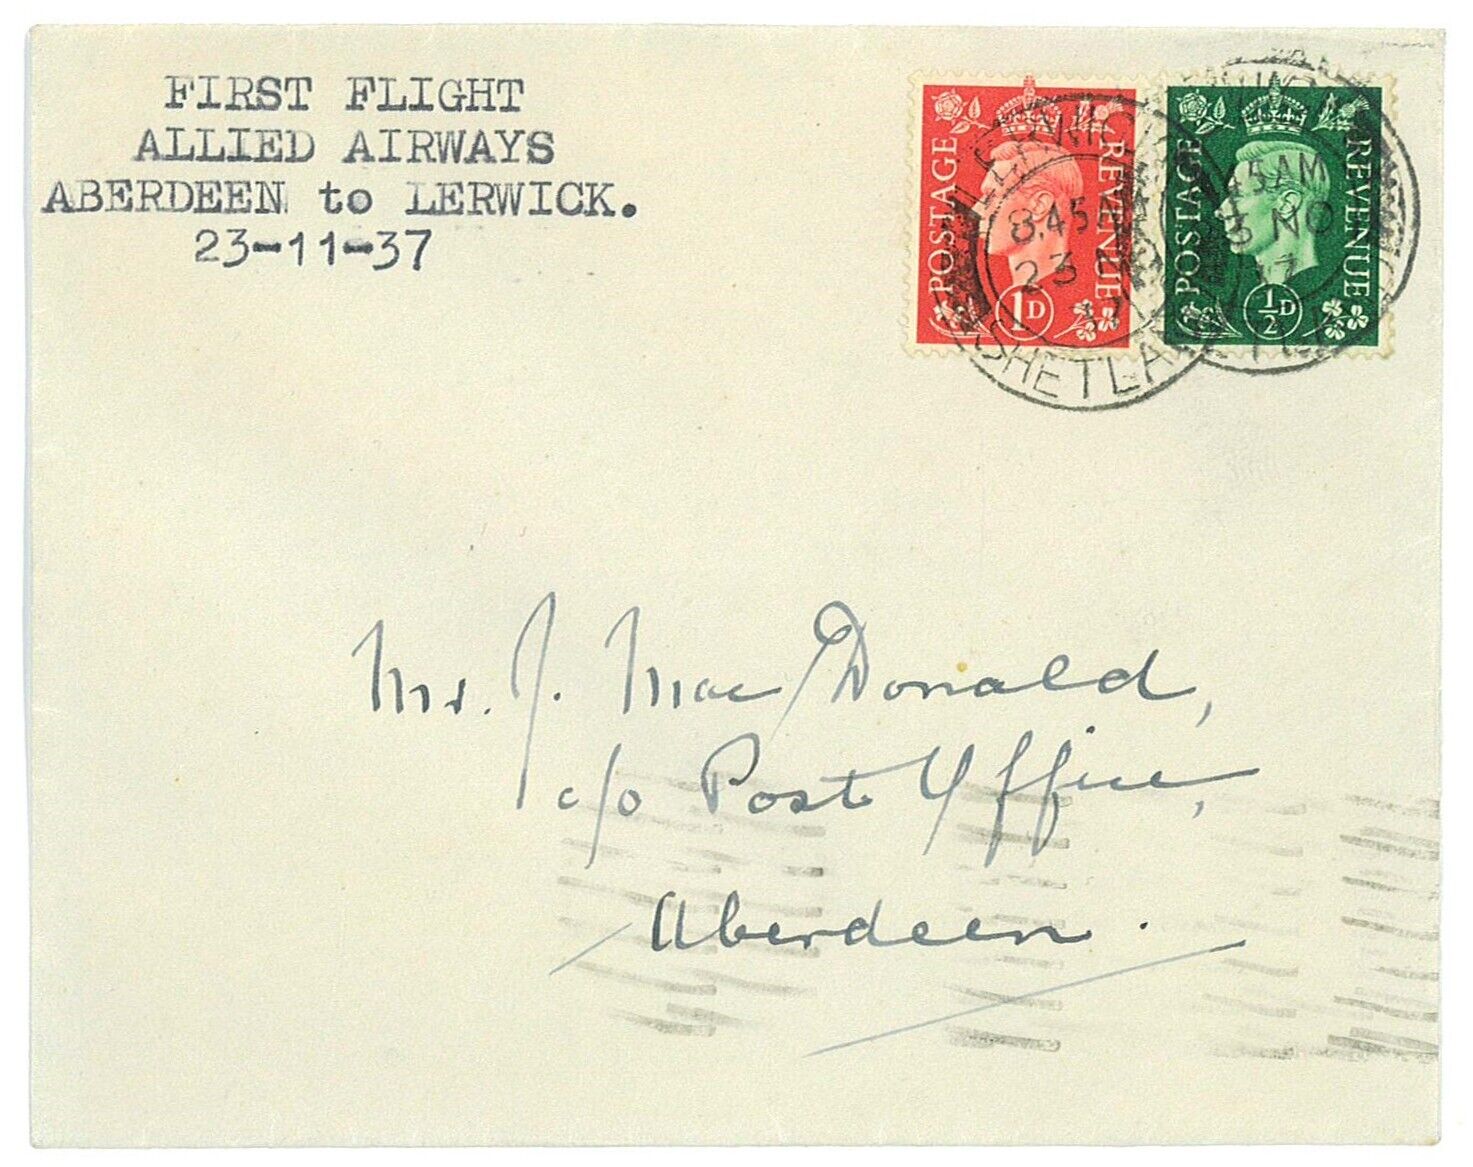 FIRST FLIGHT
ALLIED AIRWAYS
ABERDEEN to LERWICK.
23-11-37
POSTAGE REVENUE
1D
POSTAGE REVENUE
½D
LERWICK
8.45 AM
23 NO
37
SHETLAND
45 AM
3 NO
37
Mr. J. MacDonald,
c/o Post Office,
Aberdeen.